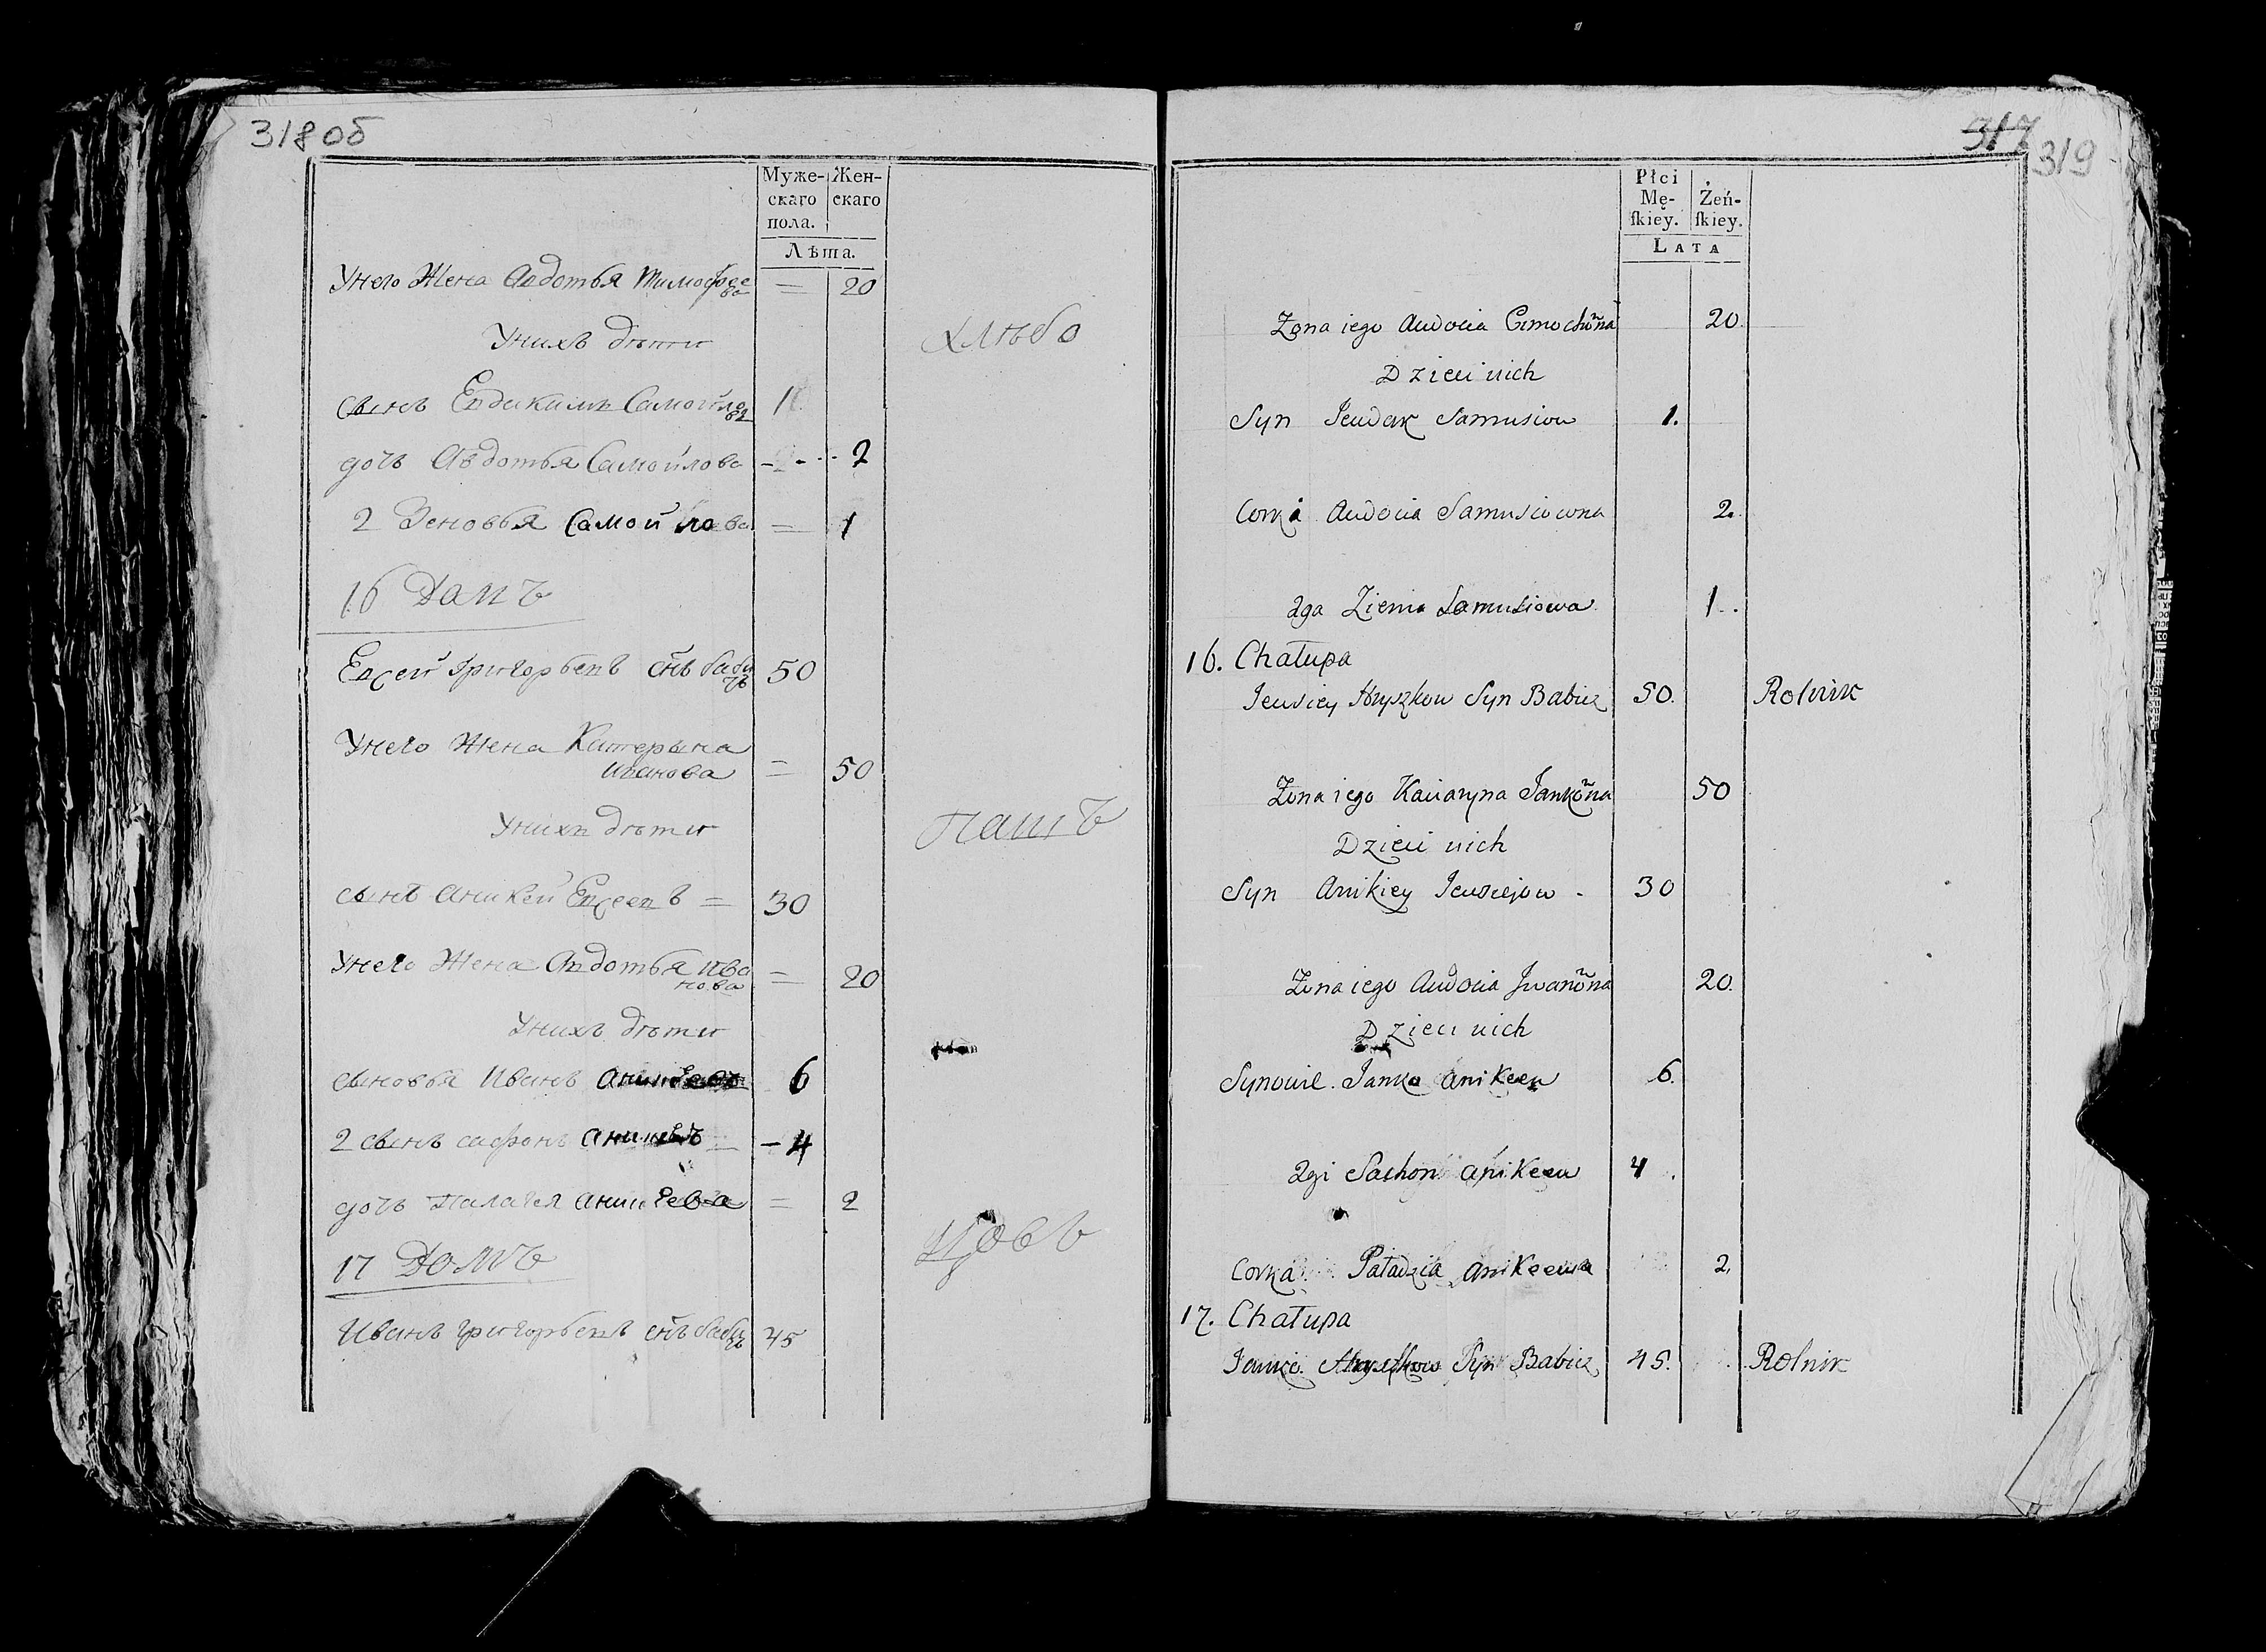 318об
Муже-
скаго
пола.
Жен-
скаго
Лѣта.
Унего Жена Авдотья Тимофее
ва = 20
Унихъ дѣти
сынъ Евдикимъ Самойло
въ 1
дочь Авдотья Самойлова - 2
2 Зеновья Самойлова = 1
16 Домъ
Евсей Григорьевъ снъ баби
чъ 50
Унего Жена Катерына
Иванова = 50
Унихъ дѣти
сынъ Аникей Евсеевъ = 30
Унего Жена Авдотья Ива
нова = 20
Унихъ дѣти
сыновья Иванъ 6
2 сынъ сафонъ - 4
дочь Палагея = 2
17 Домъ
Иванъ григорьевъ снъ баби
чъ 45
хлѣбо
пашъ
цовъ
317
319
Płci
Mę-
ſkiey.
Żeń-
ſkiey.
Lata
Zona iego Audocia Cimochowna 20.
Dzieci nich
Syn Jeudak Samusiow 1.
Corka Audocia Samusiowna 2.
2ga Zienia Samusiowa 1.
16. Chałupa
Jeusiey Hryszkow Syn Babicz 50. Rolnik
Zona iego Kaciaryna Jankowna 50
Dzieci nich
Syn Anikiey Jeusiejow - 30
Zona iego Audocia Jwanowna 20.
Dzieci nich
Synowie. Janko Anikeew 6.
2gi Sachon Anikeew 4.
Corka Paładzia Anikeewa 2.
17. Chałupa
Janko Hryszkow Syn Babicz 45. Rolnik